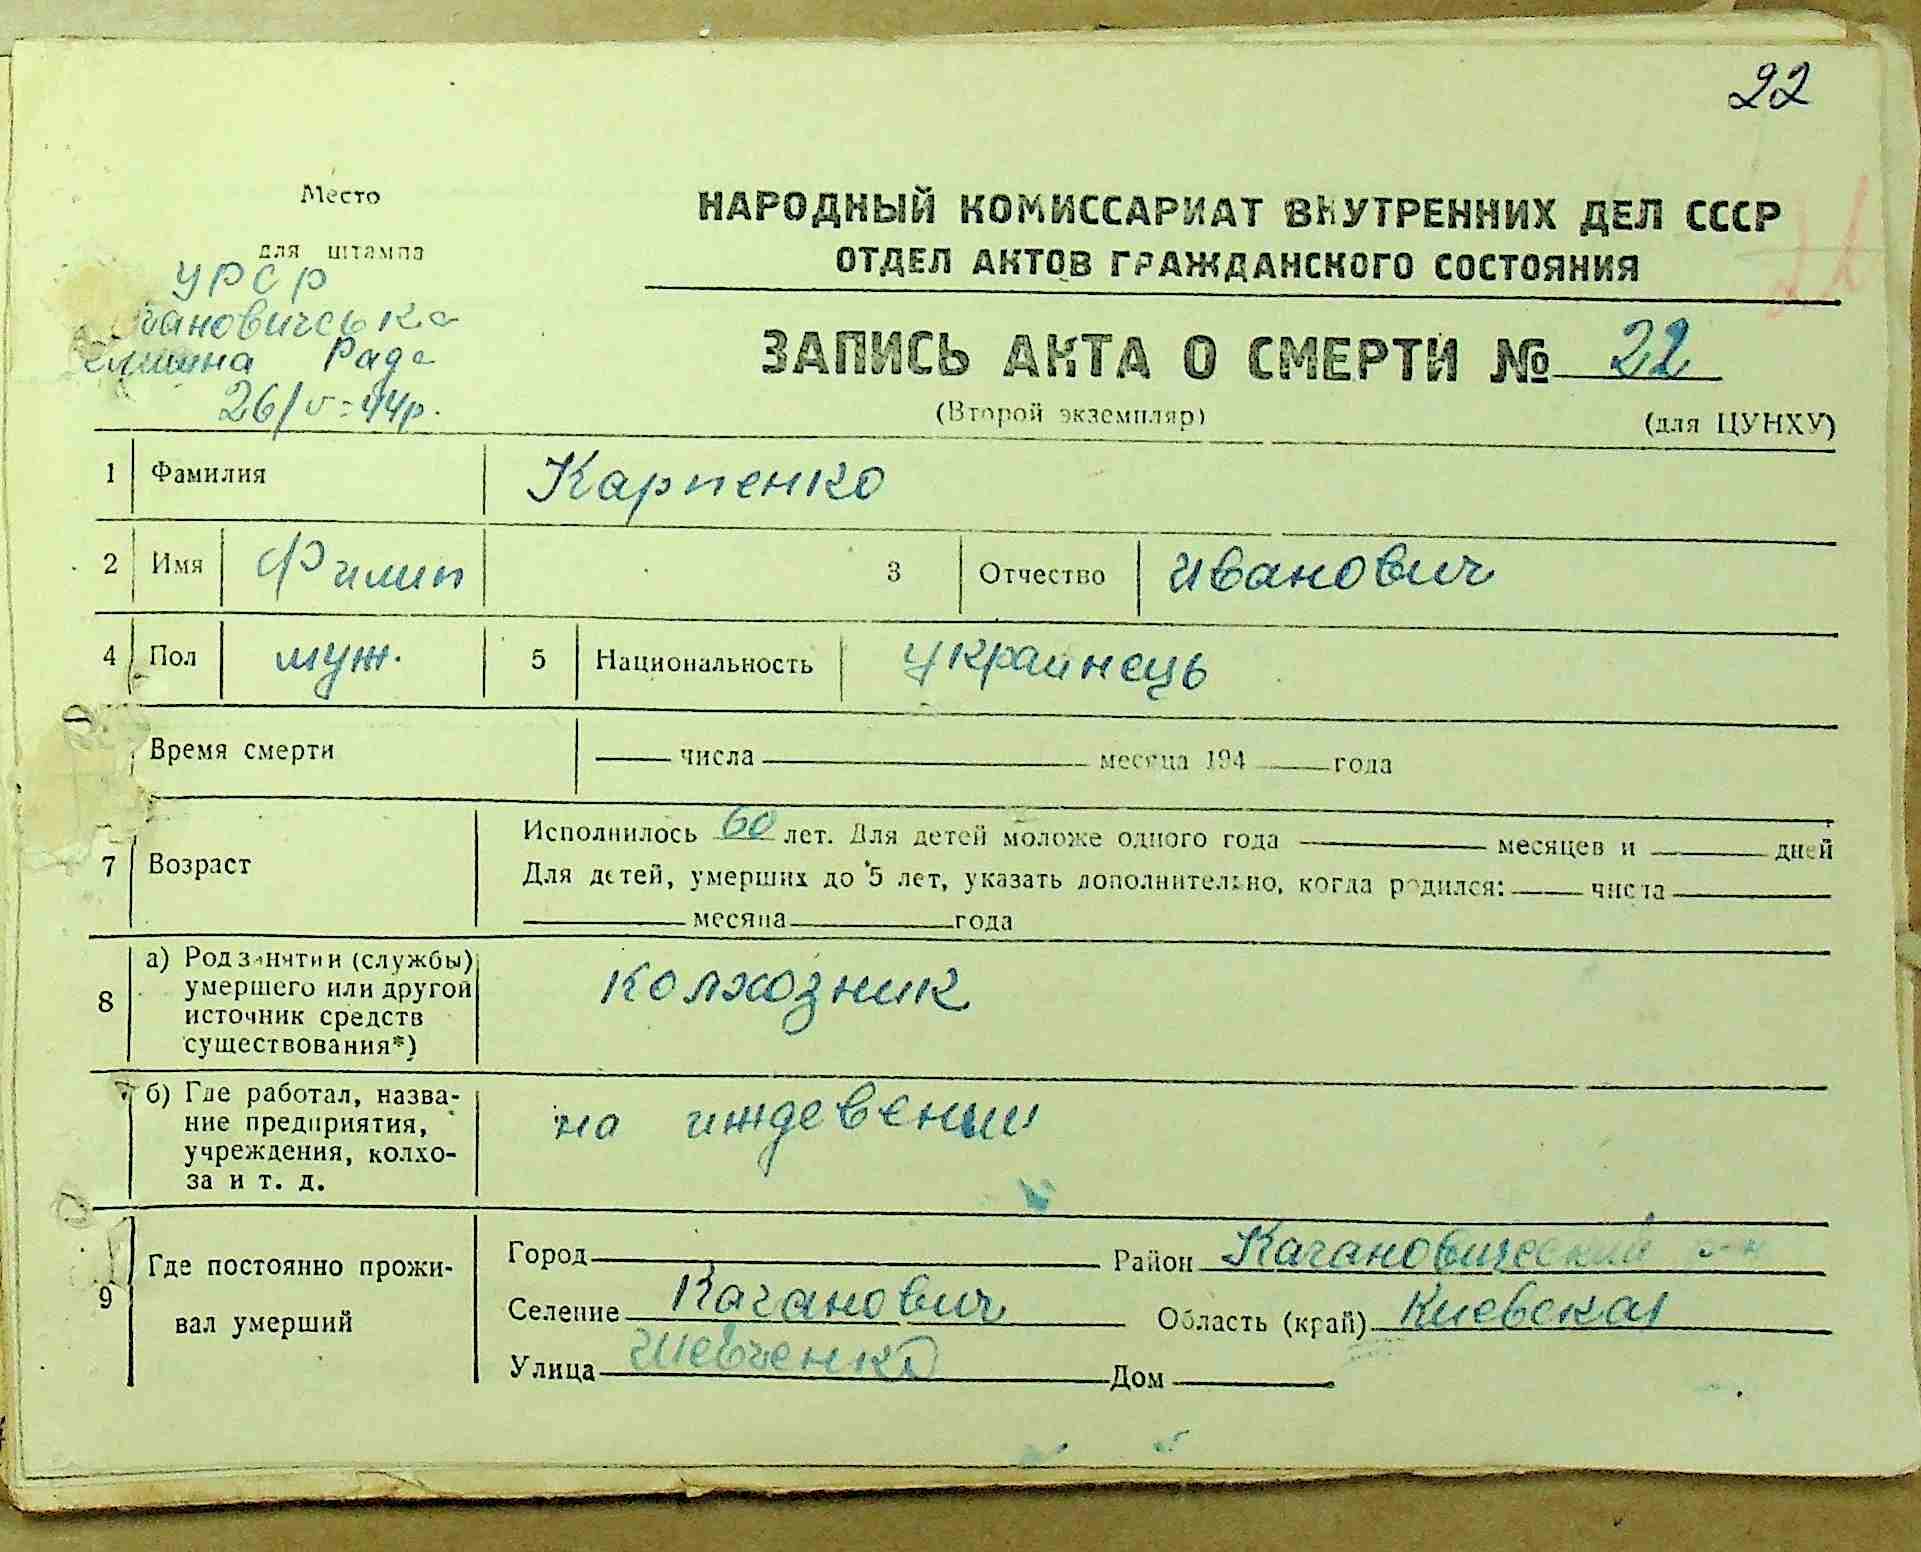 22
Место
для штампа
УРСР
гановичська
Рада
26/V-44р.
НАРОДНЫЙ КОМИССАРИАТ ВНУТРЕННИХ ДЕЛ СССР
ОТДЕЛ АКТОВ ГРАЖДАНСКОГО СОСТОЯНИЯ
22
ЗАПИСЬ АКТА О СМЕРТИ № 22
(Второй экземпляр) (для ЦУНХУ)
1 Фамилия Карпенко
2 Имя Филип 3 Отчество Иванович
4 Пол муж. 5 Национальность украинець
Время смерти числа месяца 194 года
7 Возраст
Исполнилось 60 лет. Для детей моложе одного года месяцев и дней
Для детей, умерших до 5 лет, указать дополнительно, когда родился: числа
месяца года
8 а) Род занятии (службы)
умершего или другой
источник средств
существования*)
колхозник
б) Где работал, назва-
ние предприятия,
учреждения, колхо-
за и т. д.
на иждевении
9 Где постоянно прожи-
вал умерший
Город Район Кагановический р-н
Селение Каганович Область (край) Киевская
Улица Шевченко Дом